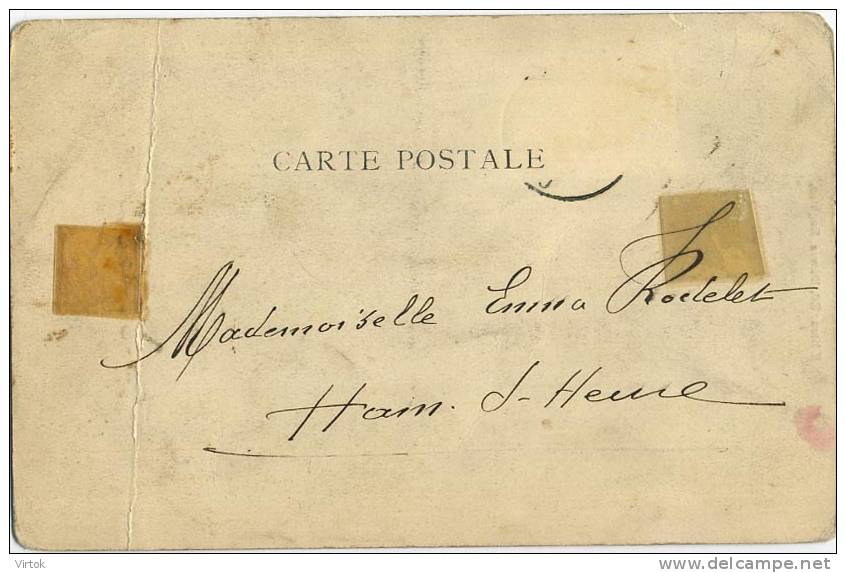 CARTE POSTALE
Mademoiselle Emma Rodelet
Ham. s-Heure
Virtok
www.delcampe.net